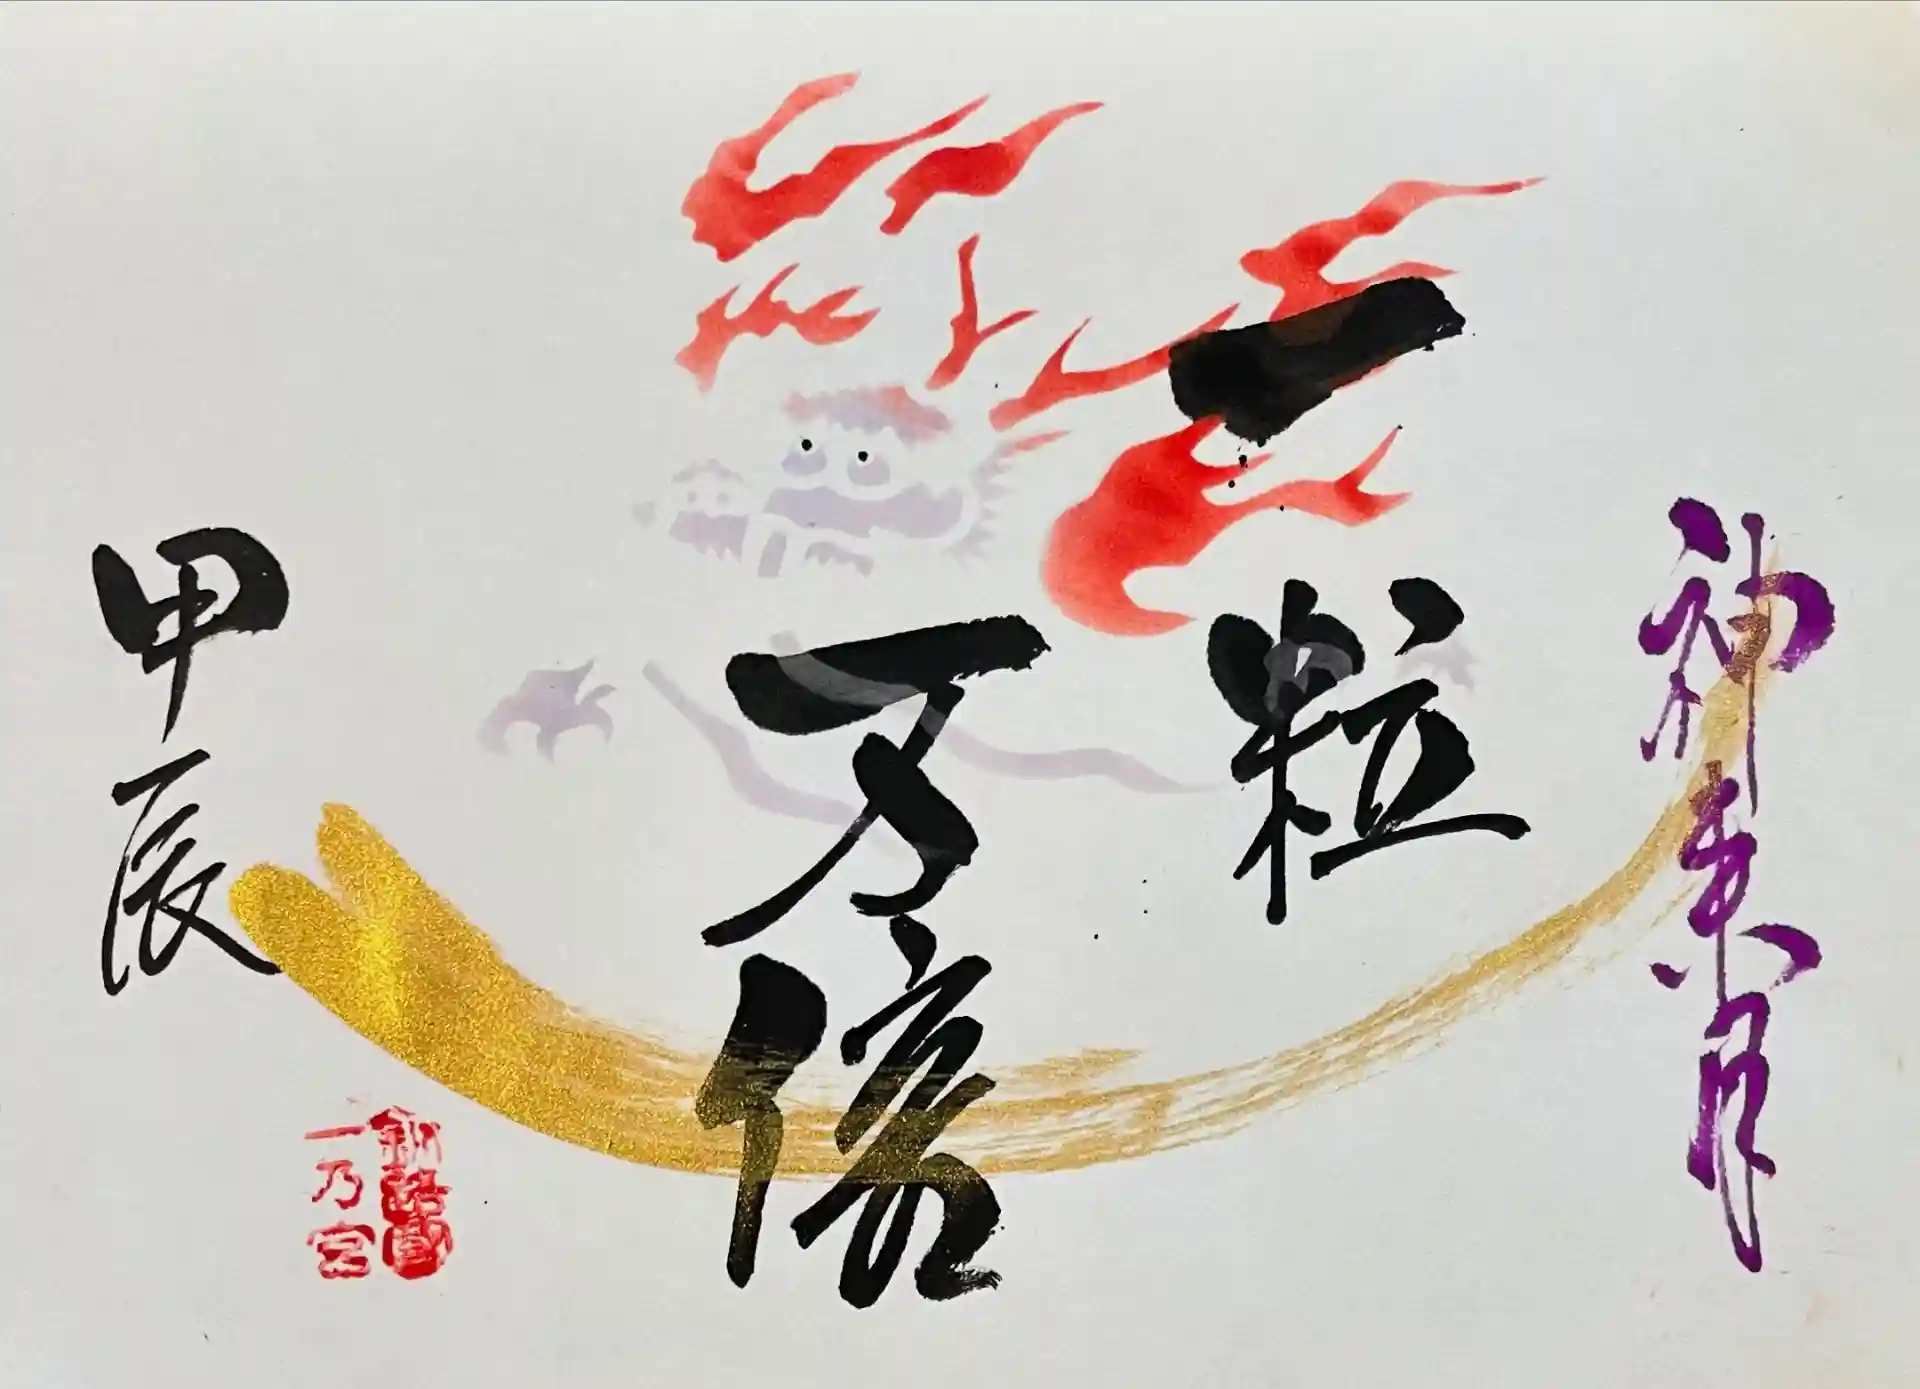 神来月
一粒
万倍
甲辰
釧路國
一乃宮